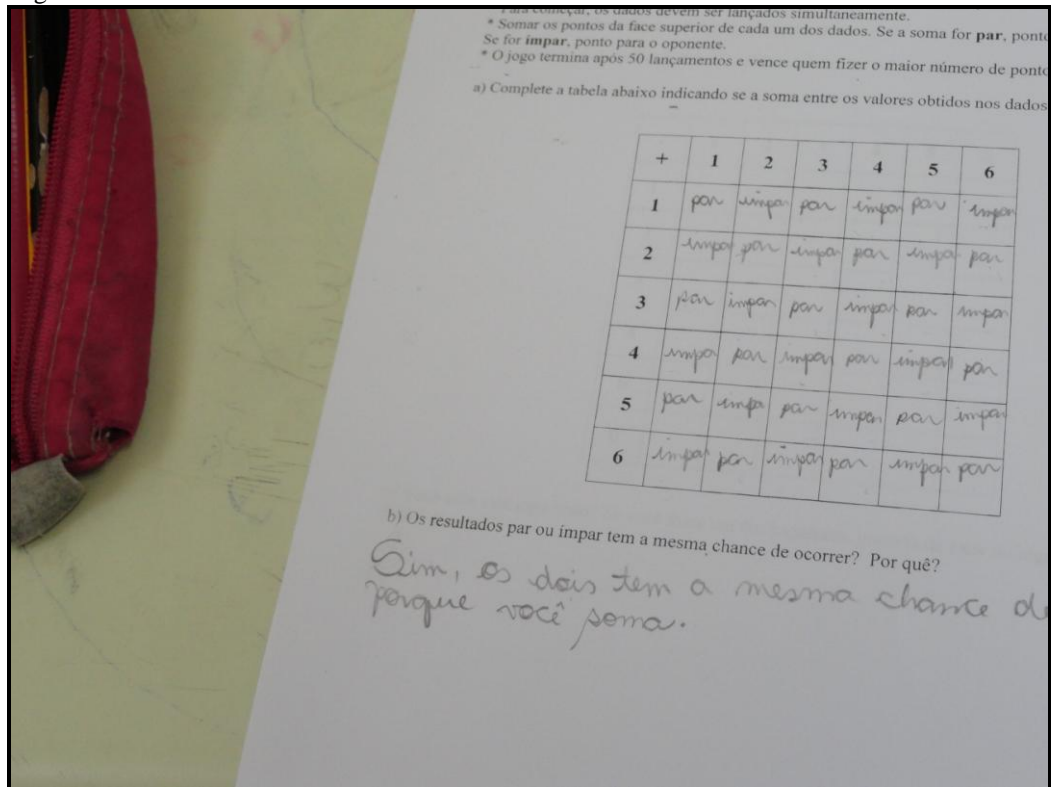 Para começar, os dados devem ser lançados simultaneamente.
* Somar os pontos da face superior de cada um dos dados. Se a soma for par, ponto
Se for ímpar, ponto para o oponente.
* O jogo termina após 50 lançamentos e vence quem fizer o maior número de ponto
a) Complete a tabela abaixo indicando se a soma entre os valores obtidos nos dados
+ 1 2 3 4 5 6
1 par impar par impar par impar
2 impar par impar par impar par
3 par impar par impar par impar
4 impar par impar par impar par
5 par impa par impar par impar
6 impar par impar par impar par
b) Os resultados par ou ímpar tem a mesma chance de ocorrer? Por quê?
Sim, os dois tem a mesma chance de
porque você soma.